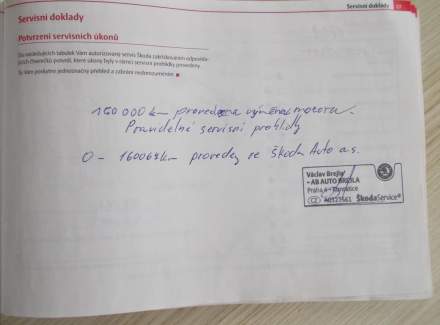 Servisní doklady
Servisní doklady
Potvrzení servisních úkonů
Do následujících tabulek Vám autorizovaný servis Škoda zaškrtnutím odpovída-
jících čtverečků potvrdí, které úkony byly v rámci servisní prohlídky provedeny.
To Vám poskytne jednoznačný přehled a zabrání nedorozuměním.
160 000 km provedena výměna motoru.
Pravidelné servisní prohlídy
0 - 160064km provedeny ve Škoda Auto a.s.
Václav Brejla
AB AUTO BREJLA
Praha
CZ ŠkodaService®